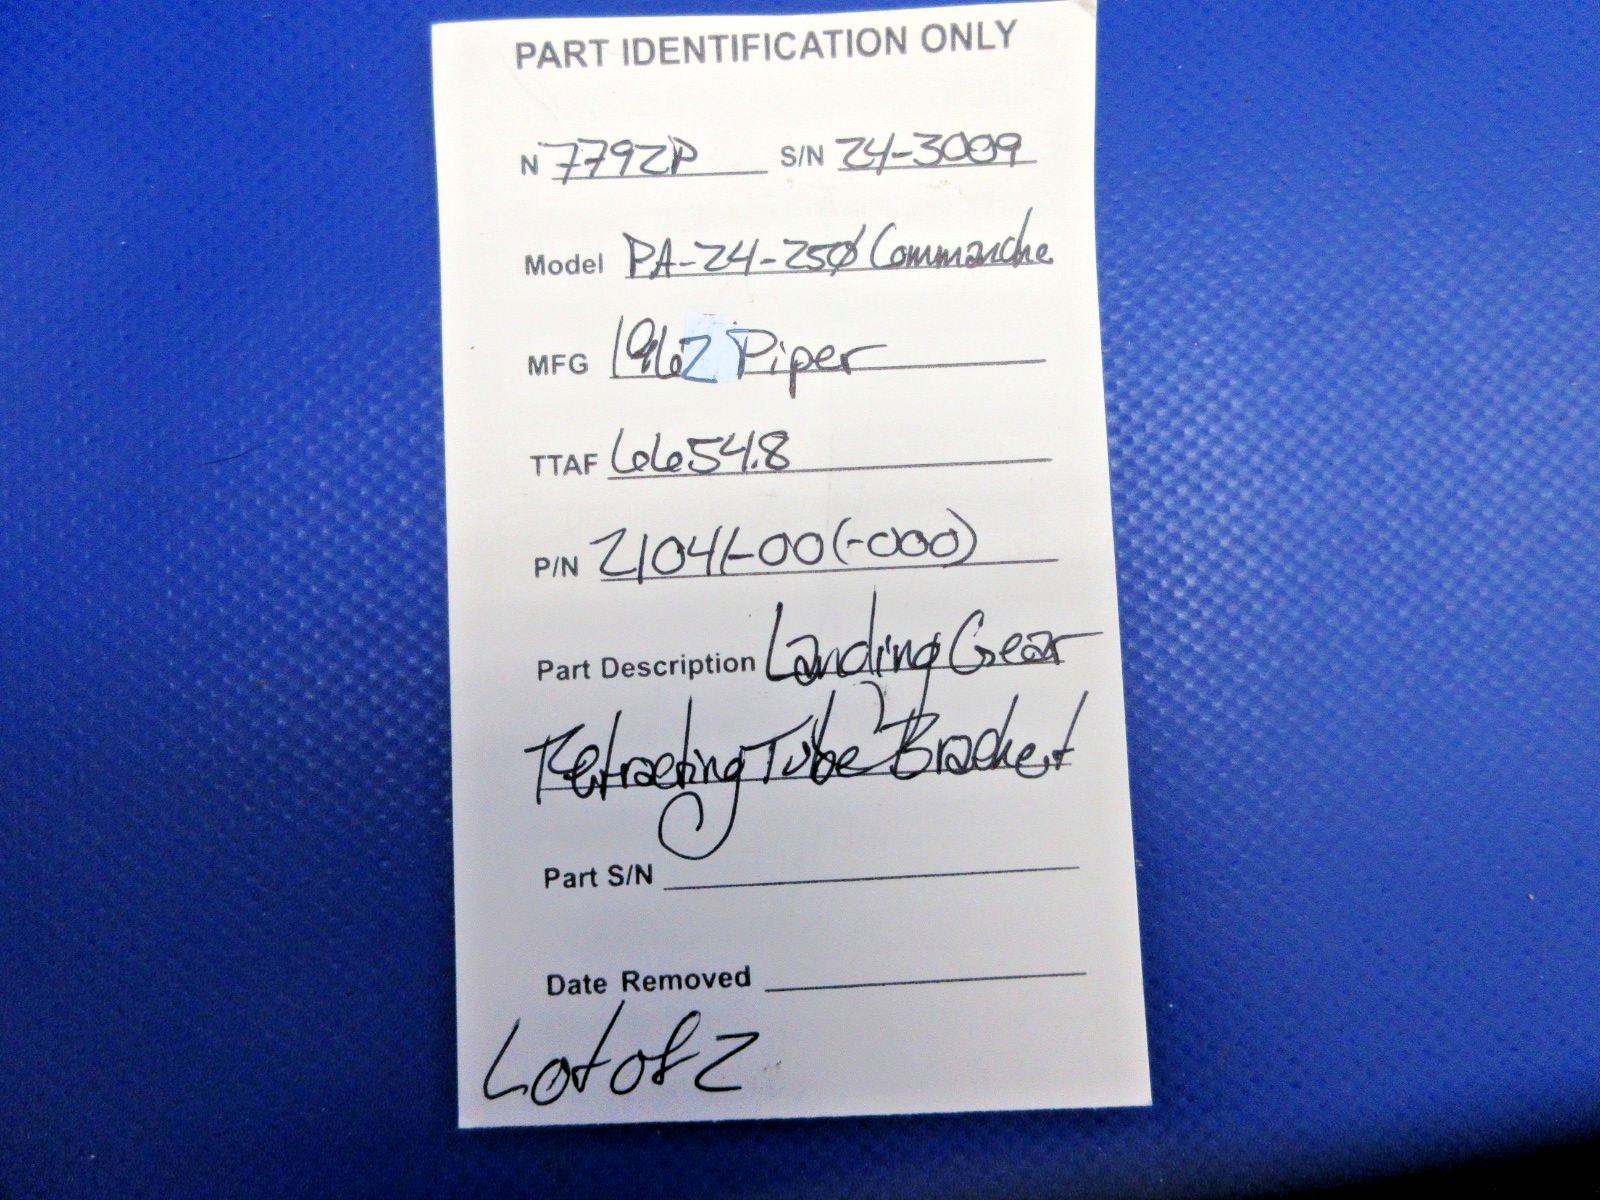 PART IDENTIFICATION ONLY
N 7792P S/N 24-3009
Model PA-24-250 Commanche
MFG 1962 Piper
TTAF 6654.8
P/N 21041-00(-000)
Part Description Landing Gear
Retracting Tube Bracket
Part S/N
Date Removed
Lot of 2